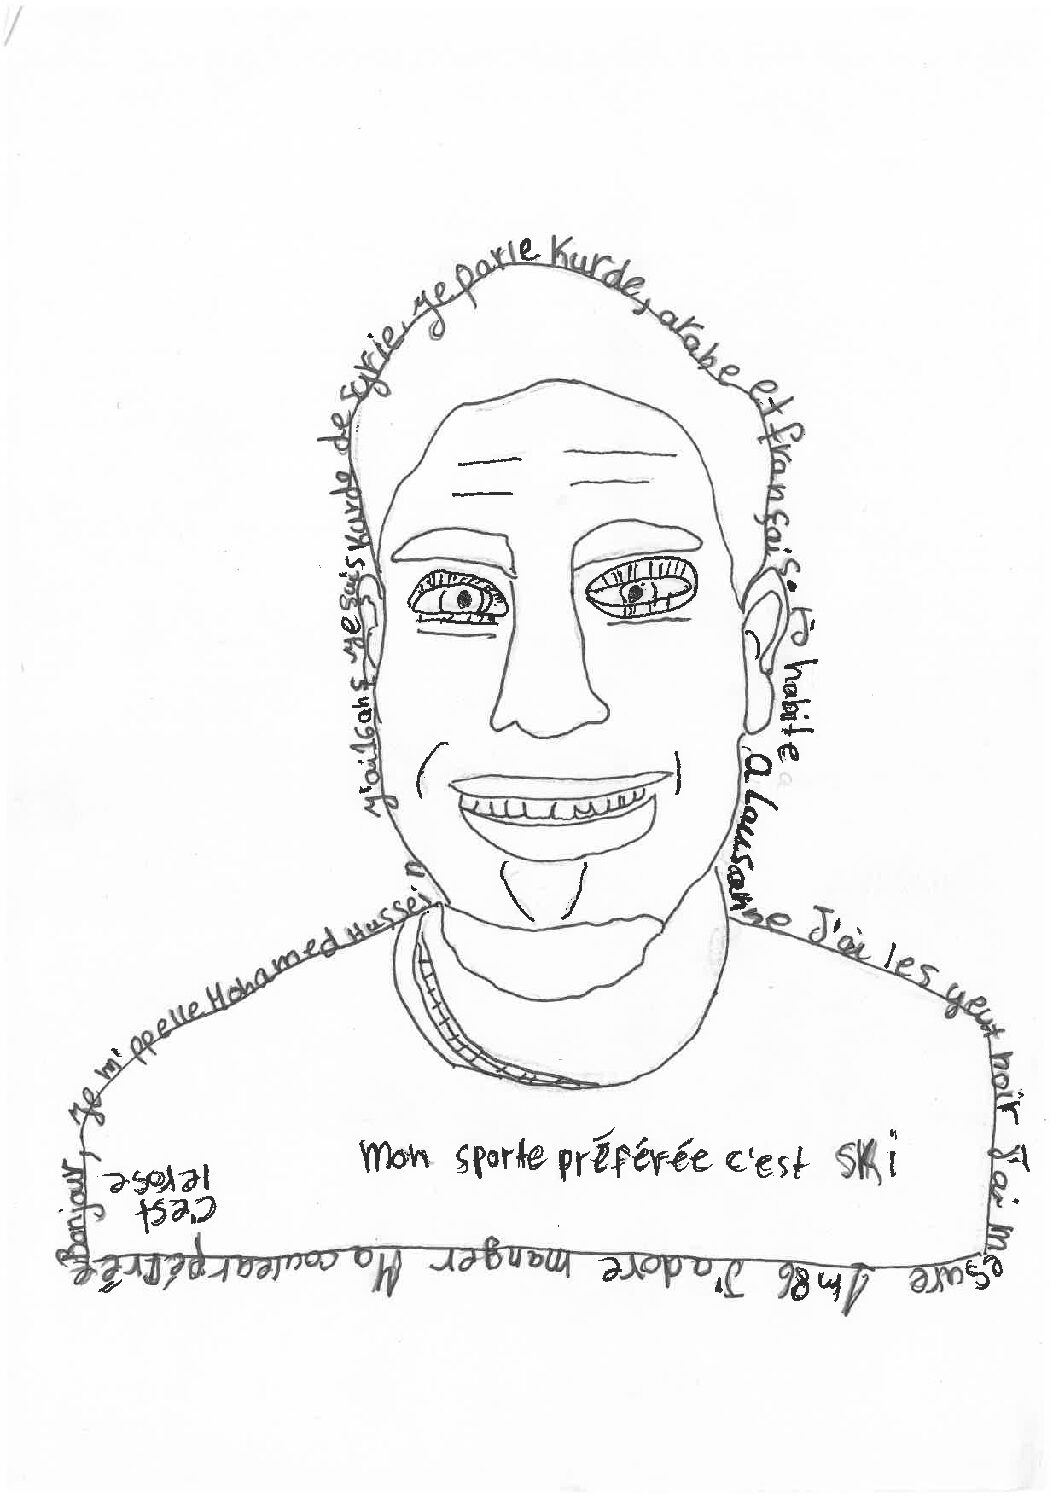 Bonjour, Je m'ppelle Mohamed Hussein
y'ai 16 ans ye suis Kurde de Syrie, ye parle Kurde, arabe et français. J' habite a Lausanne J'ai les yeux noir J'ai mesure 1m86 J'adore manger Ma coulear péfrée c'est le rose
Mon sporte préférée c'est ski